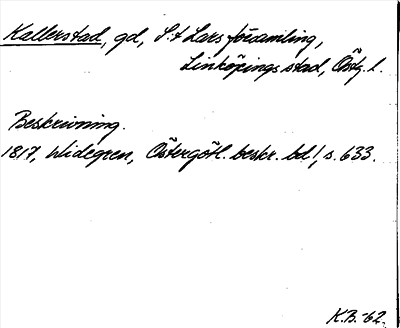 Kallerstad, gd, S:t Lars församling,
Linköpings stad, Östg. l.
Beskrivning.
1817, Widegren, Östergötl. beskr. bd 1, s. 633.
K.B.-62.